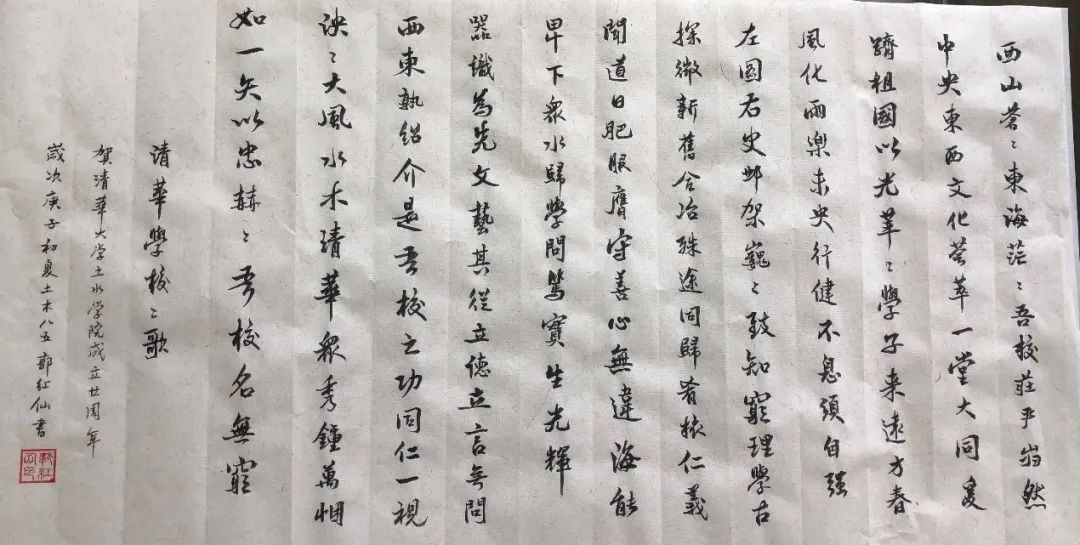 西山蒼〻東海茫〻吾校莊乎歸然
中央東西文化薈萃一堂大同爰
躋祖國以光莘〻學子来遠方春
風化雨樂未央行健不息須自强
左圖右史鄴架巍〻致知窮理學古
探微新舊合冶殊途同歸肴核仁義
聞道日肥服膺守善心無違海能
卑下衆水歸學問篤實生光輝
器識為先文藝其從立德立言無問
西東孰紹介是吾校之功同仁一視
泱〻大風水木清華衆秀鍾萬悃
如一矢以忠赫〻吾校名無窮
清華學校〻歌
賀清華大学土水学院成立廿周年
歲次庚子初夏土木八五郭紅仙書